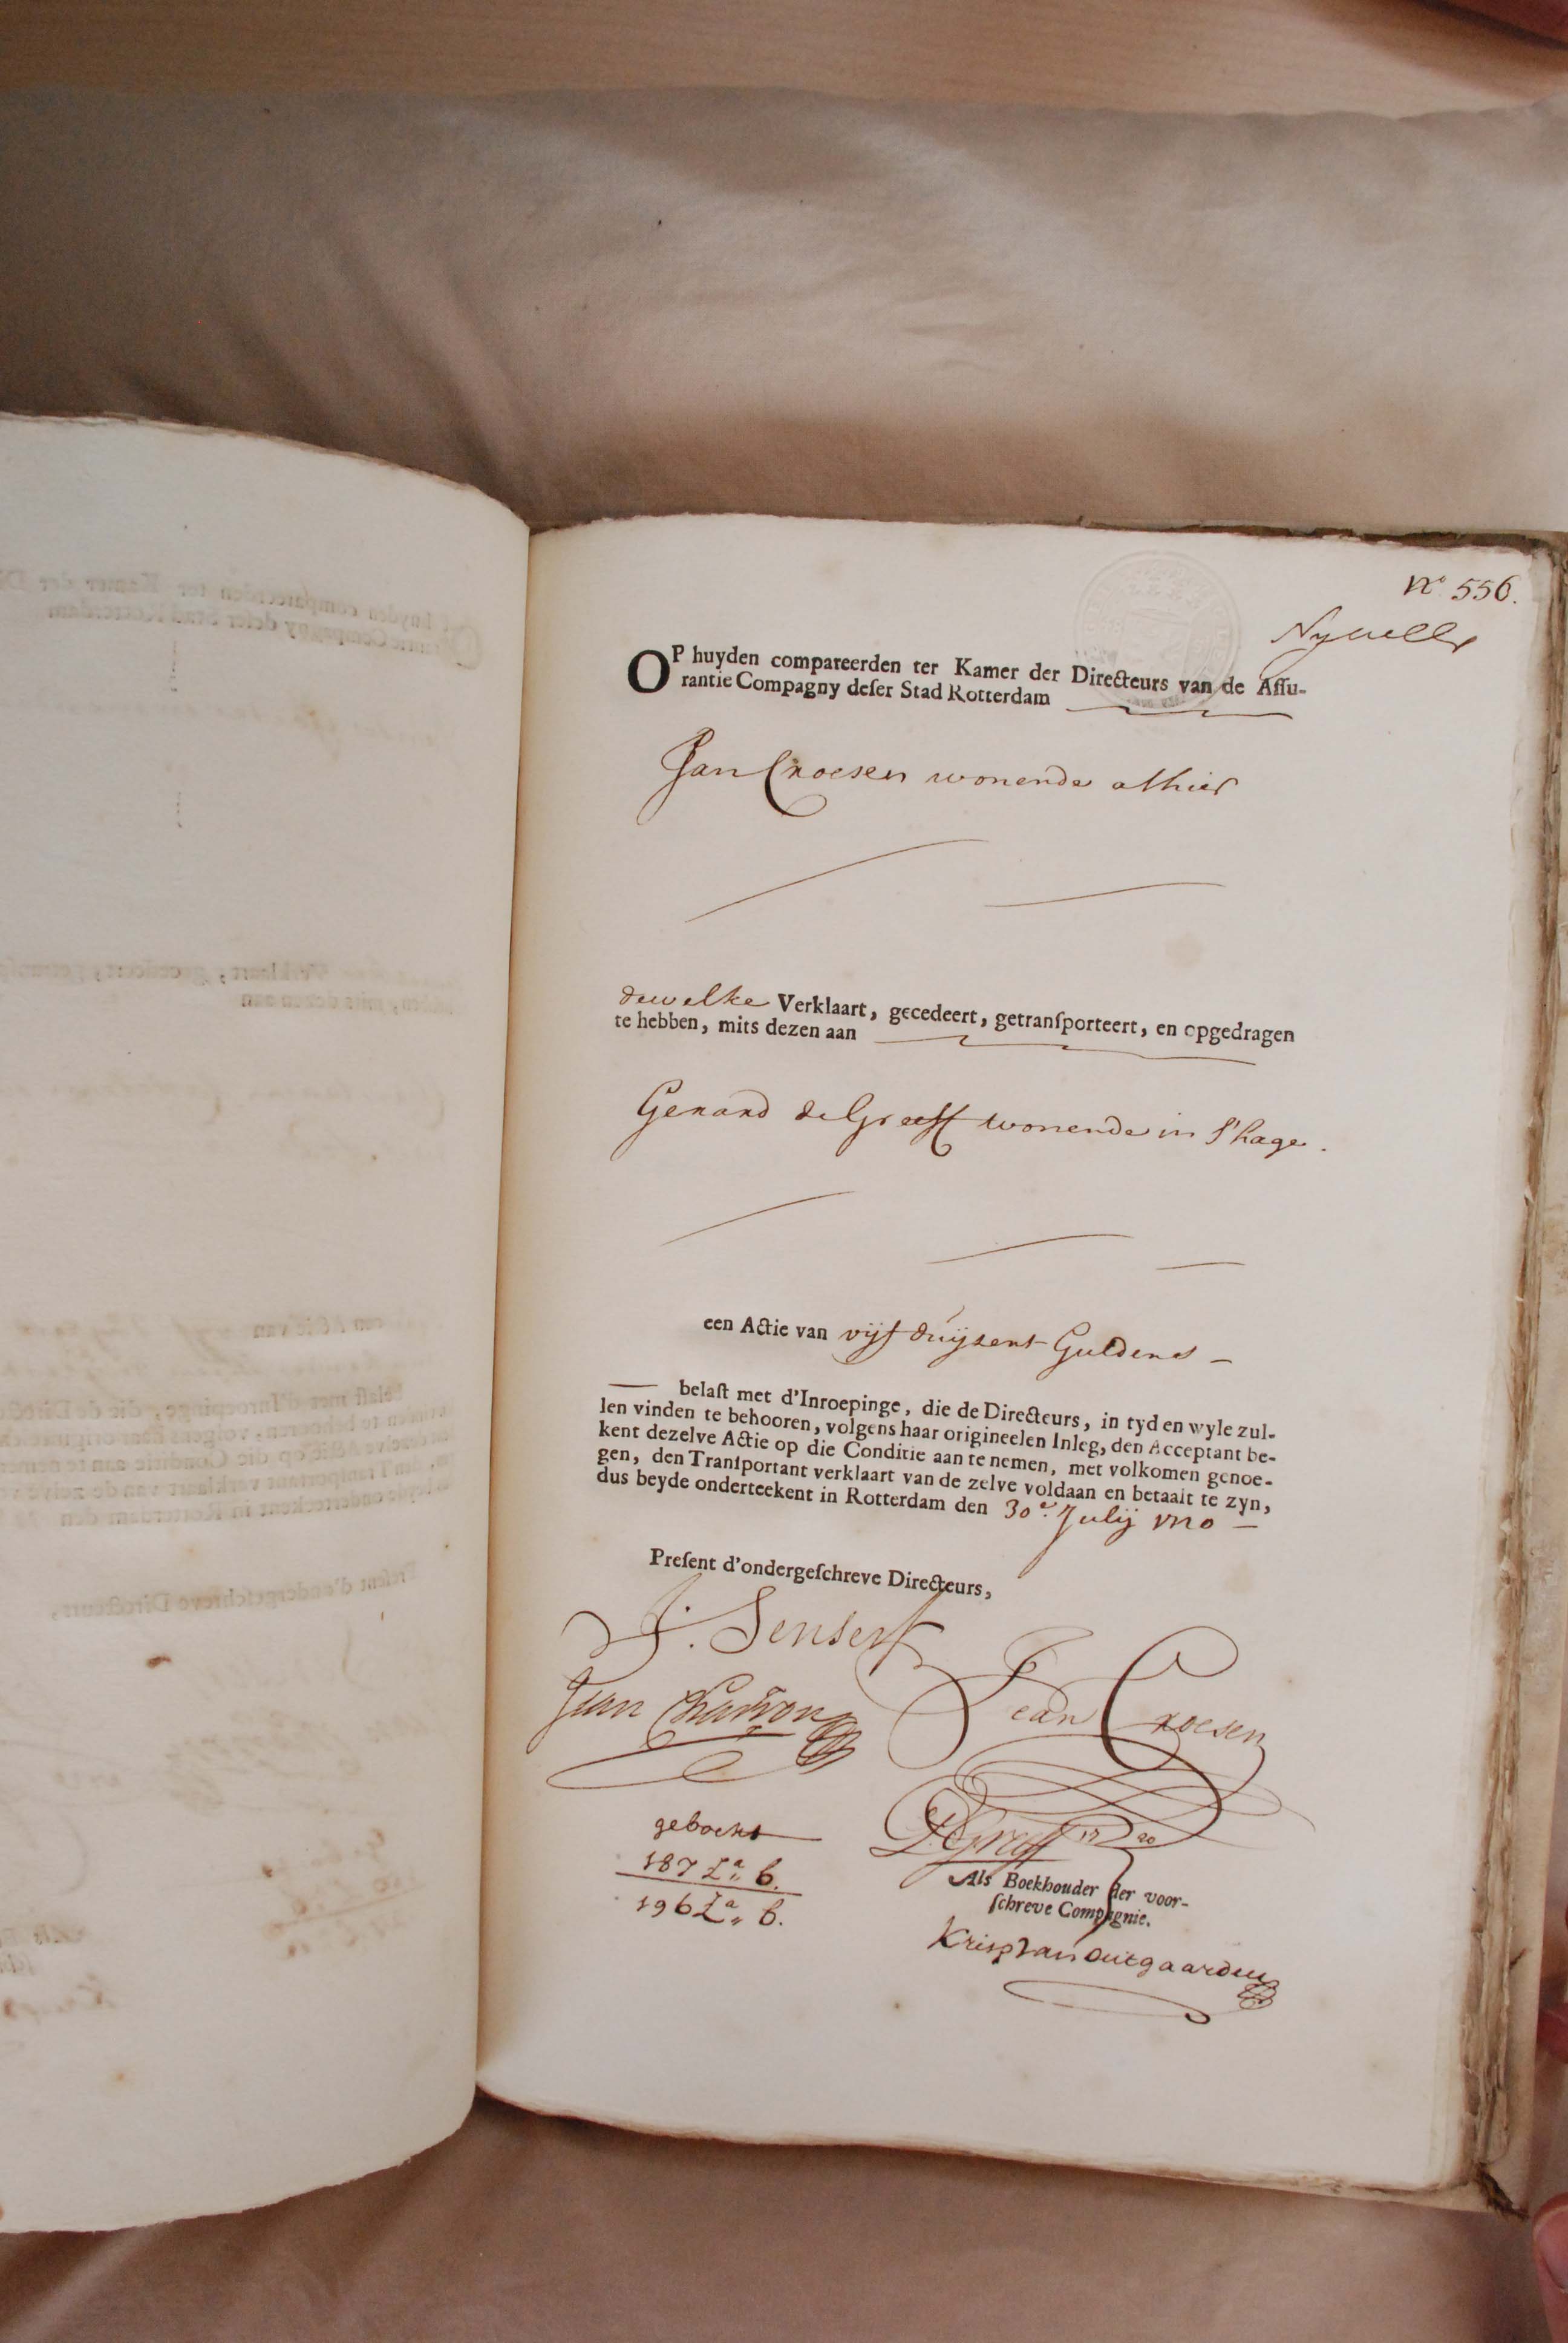 No 556.
Nyvelle
OP huyden compareerden ter Kamer der Directeurs van de Assu-
rantie Compagny deser Stad Rotterdam
Jan Croesen wonende alhier
dewelke Verklaart, gecedeert, getransporteert, en opgedragen
te hebben, mits dezen aan
Gerard de Greeff wonende in s'hage.
een Actie van vijf duijsent Guldens
belast met d'Inroepinge, die de Directeurs, in tyd en wyle zul-
len vinden te behooren, volgens haar origineelen Inleg, den Acceptant be-
kent dezelve Actie op die Conditie aan te nemen, met volkomen genoe-
gen, den Transportant verklaart van de zelve voldaan en betaalt te zyn,
dus beyde onderteekent in Rotterdam den 30e. Julij 1720
Present d'ondergeschreve Directeurs,
J. Senserf
Jean Croesen
Jean
geboekt
187 La. b.
196 La. b.
Greeff 1720
Als Boekhouder der voor-
schreve Compagnie.
Krisp van Outgaarden